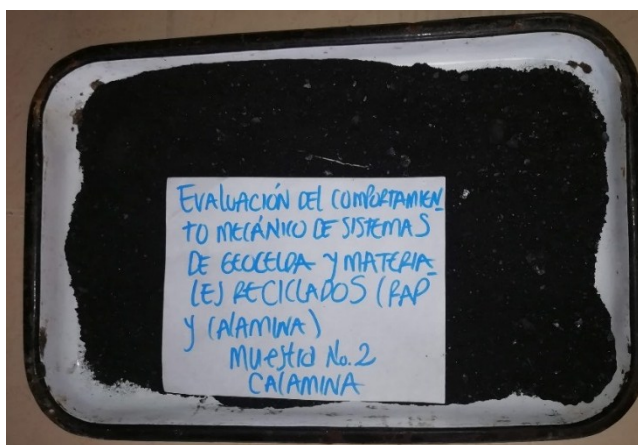 EVALUACIÓN DEL COMPORTAMIEN_
TO MECÁNICO DE SISTEMAS
DE GEOCELDA Y MATERIA_
LES RECICLADOS (RAP
Y CALAMINA)
MUESTRA No. 2
CALAMINA